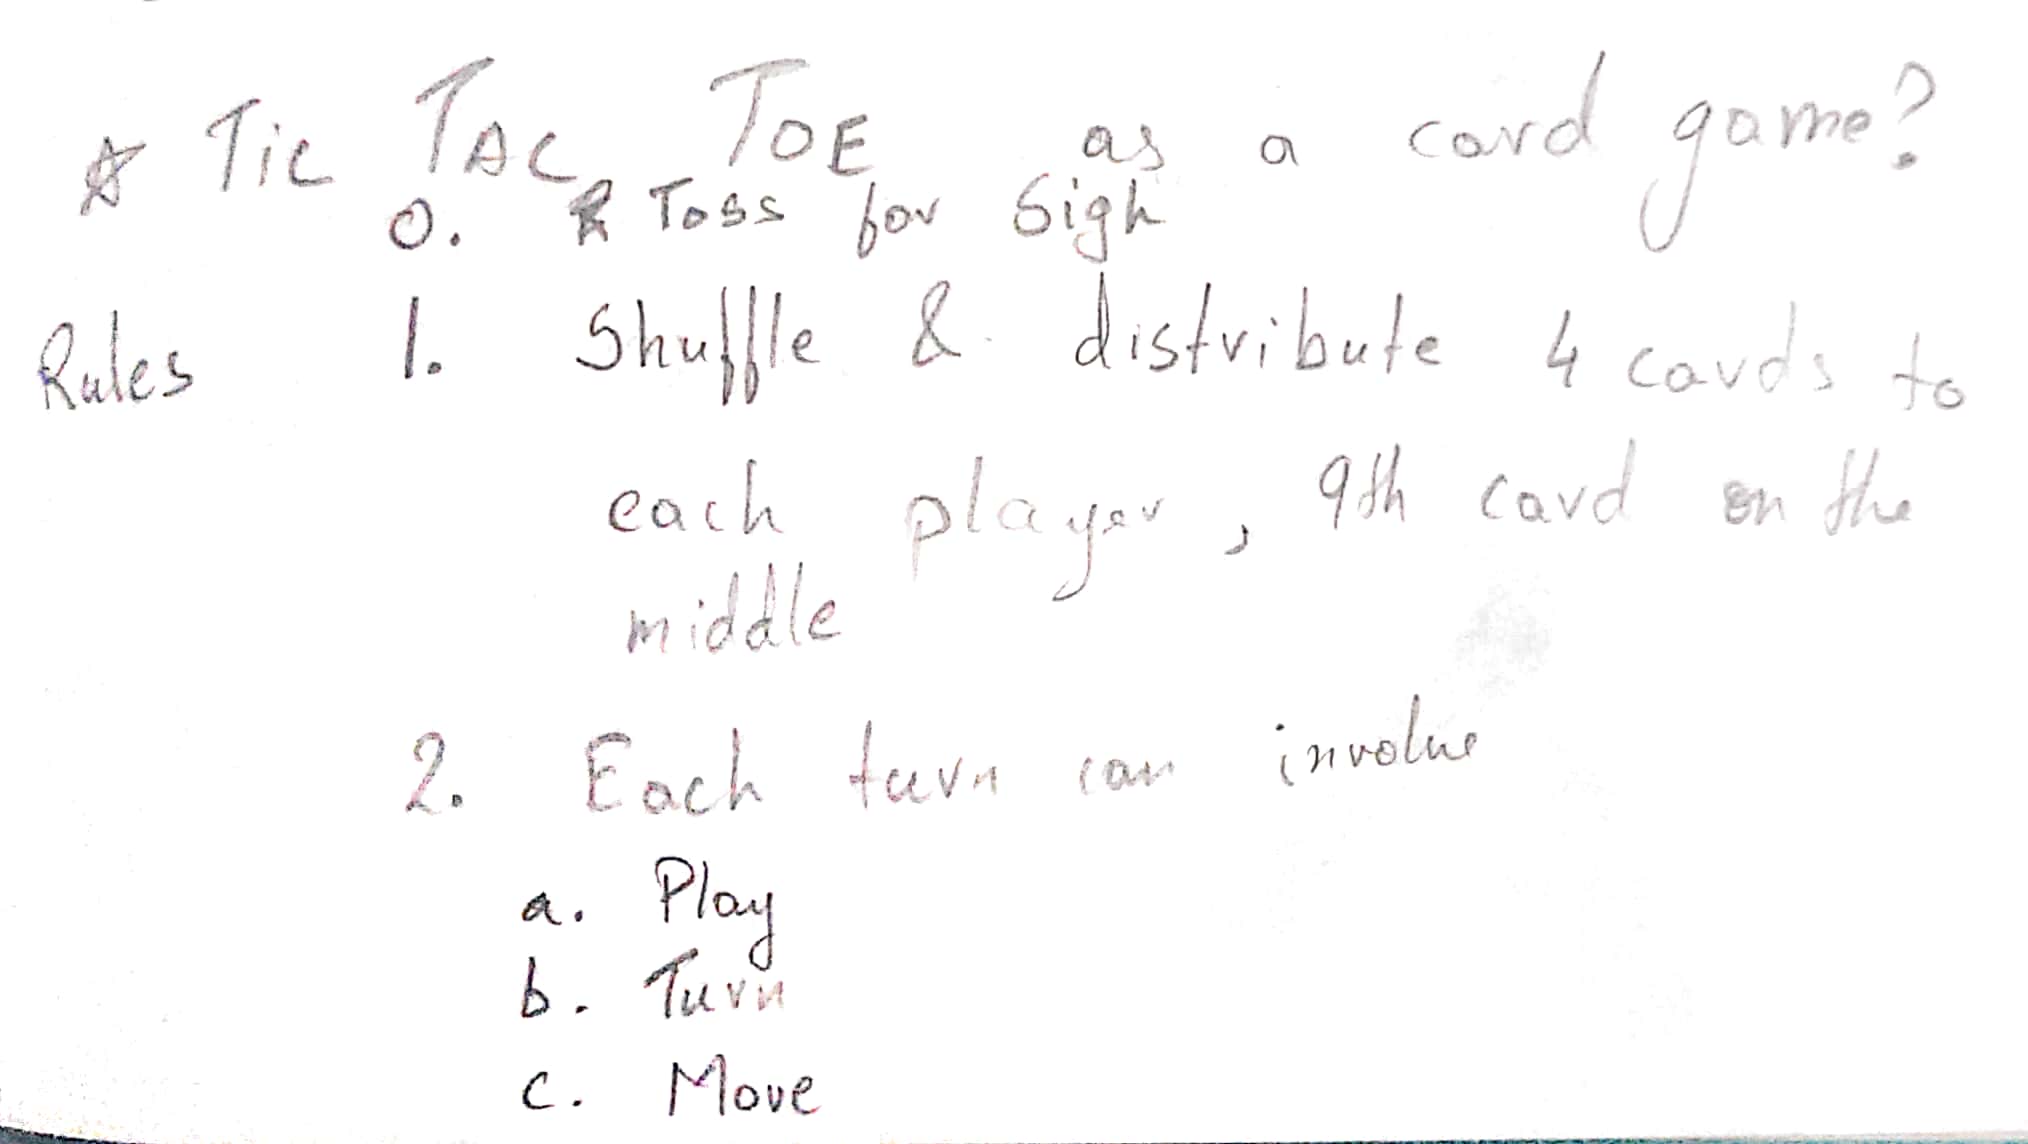 ☆ Tic TAC TOE as a card game?
0. Toss for Sign
Rules 1. Shuffle & distribute 4 cards to
each player, 9th card on the
middle
2. Each turn can involve
a. Play
b. Turn
c. Move